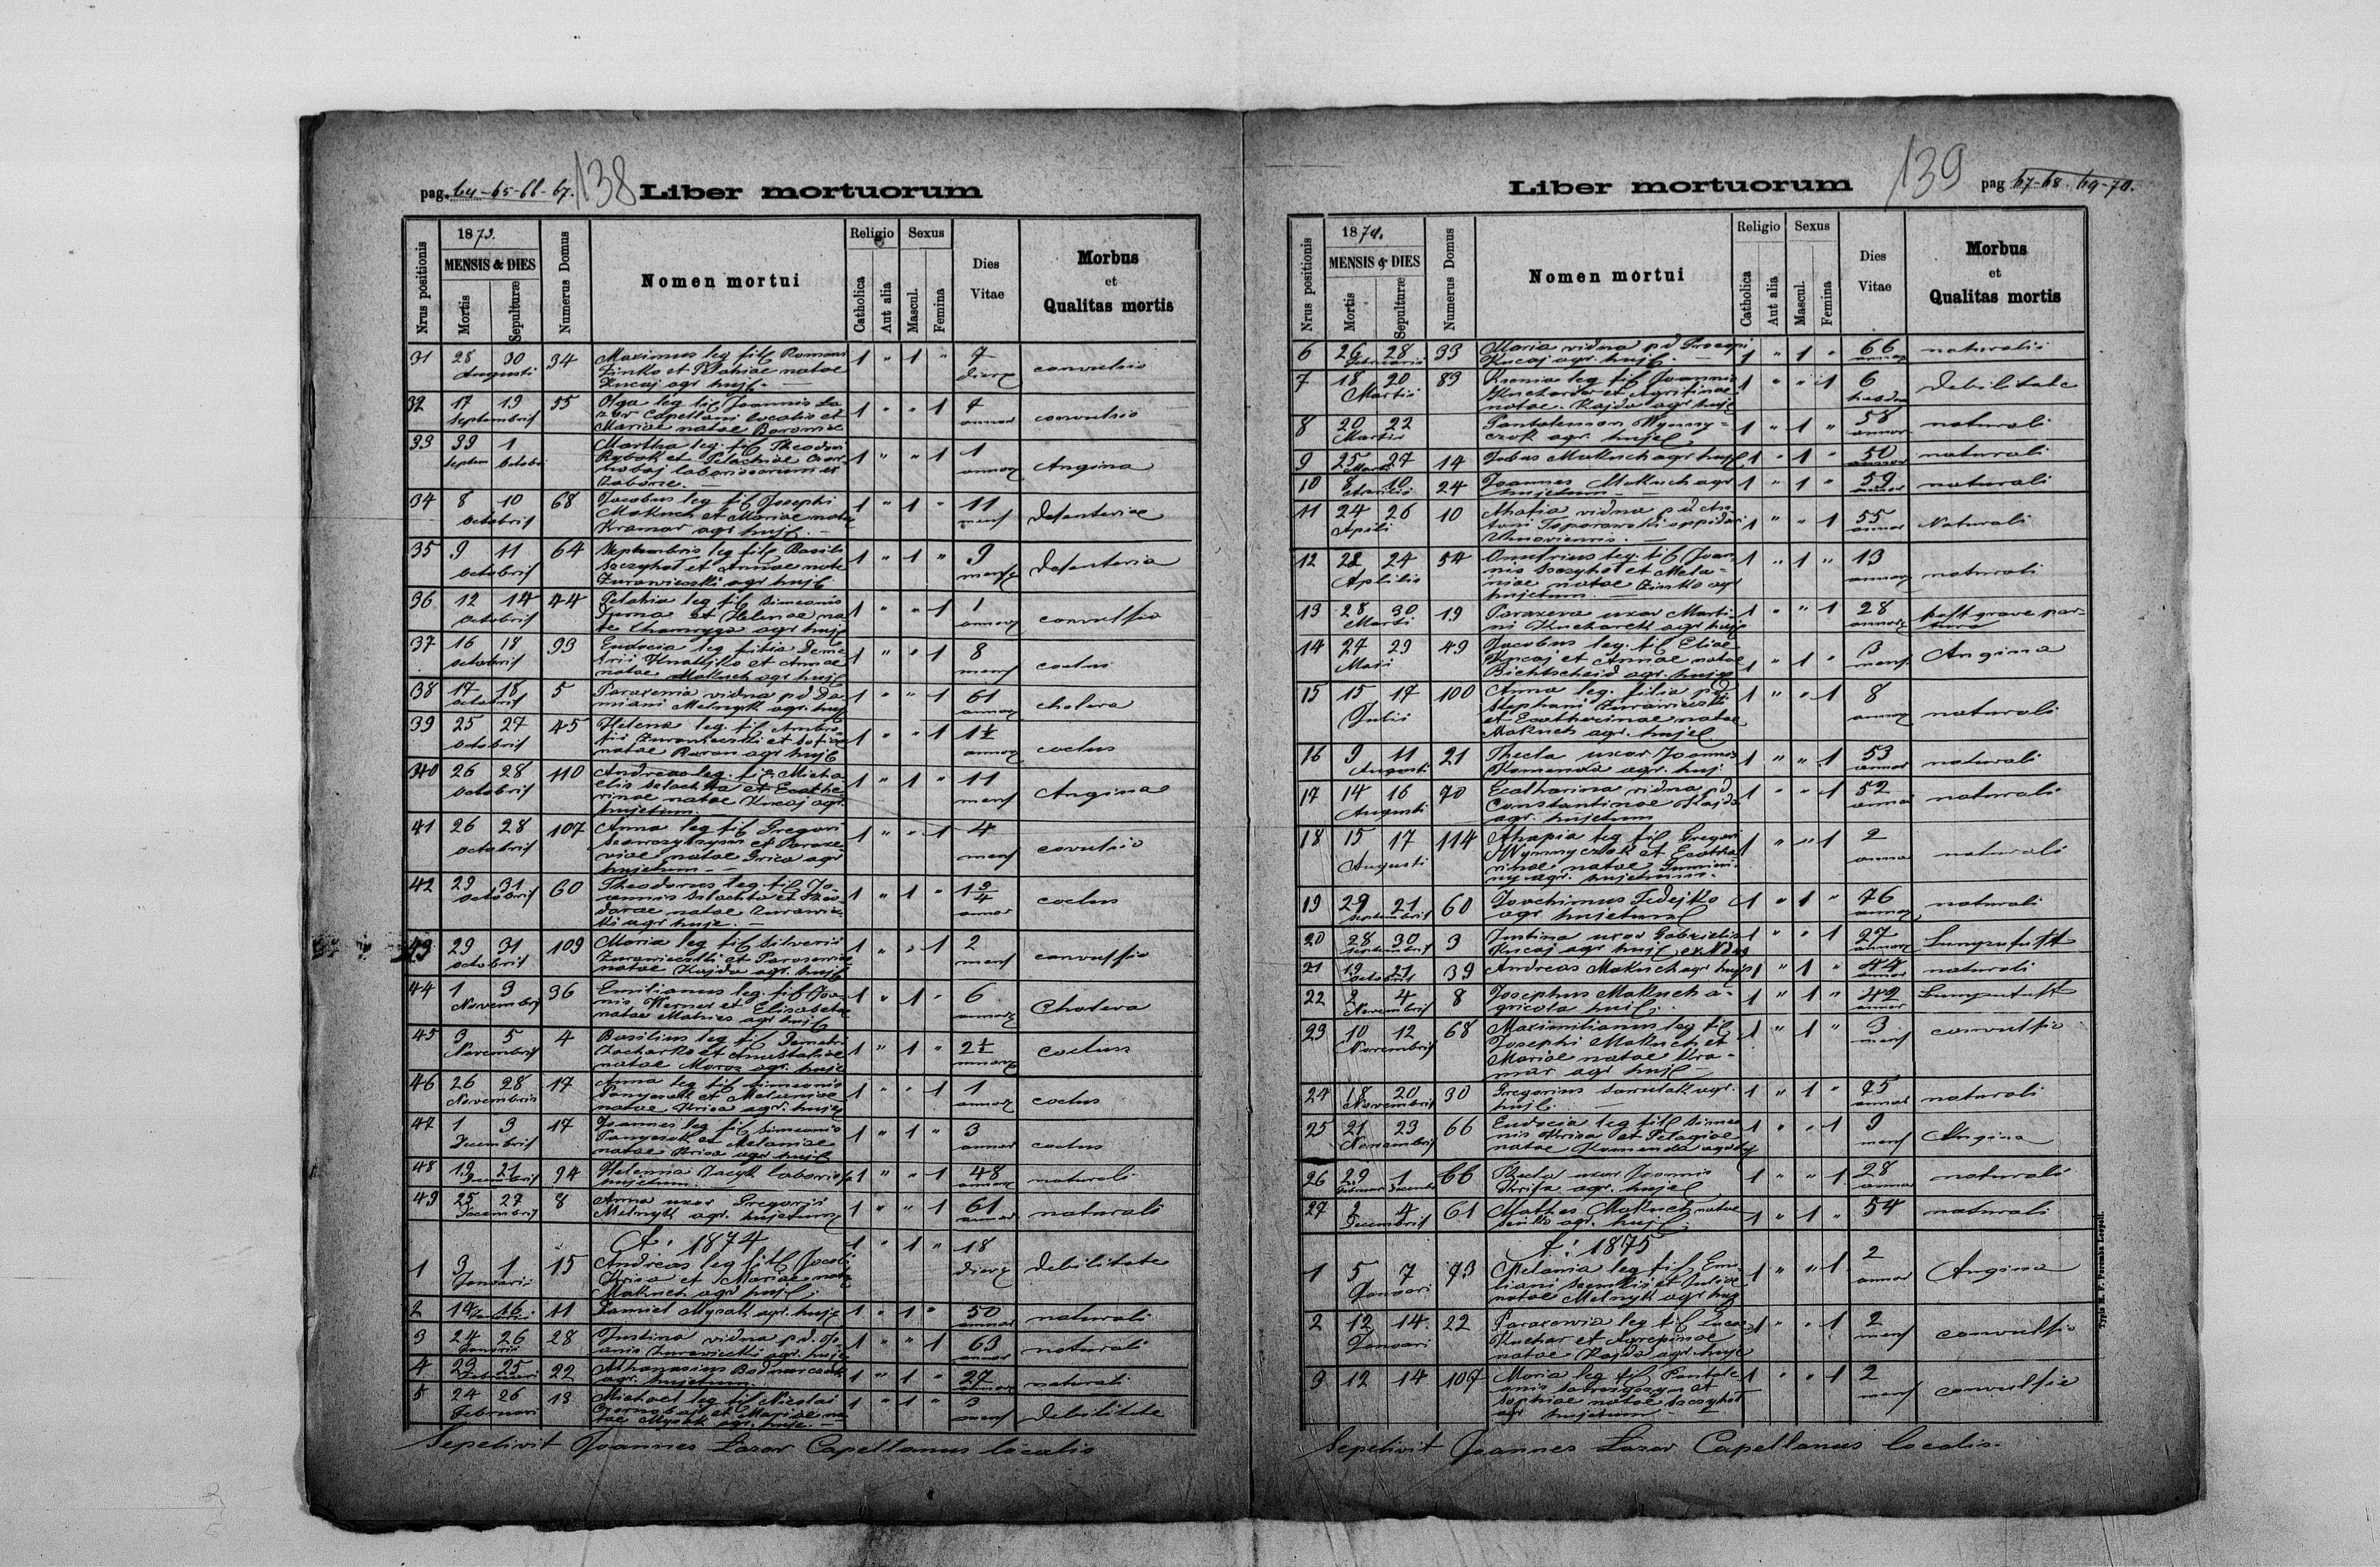 pag. 64-65-66-67. 138 Liber mortuorum
Nrus positionis
1873.
MENSIS & DIES
Mortis
Sepulturæ
Numerus Domus
Nomen mortui
Religio
Catholica
Aut alia
Sexus
Mascul.
Femina
Dies Vitae
Morbus et Qualitas mortis
31 28 30 Augusti 34 Maximus leg fil Romani 1 " 1 " 7 convulsio
Zinko et Pelahiae natae
Kucaj agr huj. —
32 17 19 Septembris 55 Olga leg fil Joannis La 1 " " 1 annor convulsio
zar Capellani localis et
Mariae natae
33 1 Septem Octobr Martha leg. fil Theodori 1 " " 1 1 annor Angina
Rybak et Pelachiae
34 8 10 Octobris 68 Jacobus leg fil Josephi 1 " 1 " 11 mens
Makuch et Mariae natae
Kramar agr huj. —
35 9 11 Octobris 64 leg fil Basili 1 " 1 " 9 mens
Saczyhot et Annae nate
Zurawiecki agr huj
36 12 14 Octobris 44 Pelahia leg fil Simeonis 1 " " 1 1 annor convulsio
Duma et Helenae na
te agr huj
37 16 18 Octobris 93 Eudocia leg filia Deme 1 " " 1 8 mens coctus
trii et Annae
natae Makuch agr huj
38 17 18 Octobris 5 Paraxenia vidua pd Da 1 " " 1 61 annor cholera
miani Melnyk agr. huj
39 25 27 Octobris 45 Helena leg. fil Ambro 1 " " 1 1½ annor coctus
sii Zurawiecki et
natae Baran agr huj
340 26 28 Octobris 110 Andreas leg. fil Micha 1 " 1 " 11 mens Angina
elis Selachta et Ecathe
rinae natae Kucaj agr.
hujetum
41 26 28 Octobris 107 Anna leg fil Gregori 1 " " 1 4 mens
et Paraxe
viae natae Grica agr
hujetum —
42 29 31 Octobris 60 Theodorus leg. fil Jo 1 " 1 " 1¾ annor coctus
annis Selachta et Theo
dorae natae Zurawie
cki agr huj. —
43 29 31 Octobris 109 Maria leg fil Silverii 1 " " 1 2 mens convulsio
Zurawiecki et Paraxeniae
natae Kajda agr. huj
44 1 3 Novembris 36 Emilianus leg. fil Joa 1 " 1 " 6 annor Cholera
nis Werner et Elisabetae
natae agr huj
45 3 5 Novembris 4 Basilius leg fil Demetri 1 " 1 " 2½ annor coctus
Zacharko et Anastasiae
natae Moroz agr. huj
46 26 28 Novembris 17 Anna leg fil Simeonis 1 " " 1 1 annor coctus
et Melaniae
natae Krisa agr. huj
47 1 3 Decembris 17 Joannes leg fil Simeonis 1 " 1 " 3 annor coctus
et Melaniae
natae Krisa agr huj
48 19 21 Decembris 94 Helenna Jacyk 1 " " 1 48 annor naturali
hujetum
49 25 27 Decembris 8 Anna uxor Gregorii 1 " " 1 61 annor naturali
Melnyk agr. hujetum
A: 1874
1 3 1 Januarii 15 Andreas leg fil Jacobi 1 " 1 " 18 dierz Debilitate
Krisa et Mariae natae
Makuch agr huj.
2 14 16 Januarii 11 Damiel Mysak agr. huj 1 " 1 " 50 annor naturali
3 24 26 Januarii 28 Justina vidua pd. Jo 1 " " 1 63 annor naturali
anis Zurawiecki agr. huj
4 23 25 Februari 22 Athanasius 1 " 1 " 27 annor naturali
agr. hujetum
5 24 26 Februari 13 Michael leg fil Nicolai 1 " 1 " 3 mens Debilitate
et Mariae na
tae Mysak agr. huj. —
Sepelivit Joannes Lazar Capellanus localis
Liber mortuorum 139 pag 67-68. 69-70.
Nrus positionis
1874.
MENSIS & DIES
Mortis
Sepulturæ
Numerus Domus
Nomen mortui
Religio
Catholica
Aut alia
Sexus
Mascul.
Femina
Dies Vitae
Morbus et Qualitas mortis
6 26 28 Februarii 33 Maria vidua pd Procopi 1 " 1 " 66 annor naturalis
Kucaj agr. huj. —
7 18 20 Martii 83 Xenia leg fil Joannis 1 " " 1 6 Debilitate
et
natae Kajda agr huj
8 20 22 Martii Pantalemon Wynny= 1 " 1 " 58 annor naturali
czok agr. huj
9 25 27 Marti 14 Makuch agr huj 1 " 1 " 50 annor naturali
10 8 10 Aprilis 24 Joannes Makuch agr 1 " 1 " 59 annor naturali
hujetum —
11 24 26 Apili 10 vidua pd An 1 " " 1 55 annor Naturali
toni oppidari
12 22 24 Aplilis 54 Onufrius leg. fil Joan 1 " 1 " 13 annor naturali
nis Saczyhot et Mela=
niae natae Zinko agr
hujetum. —
13 28 30 Marti 19 Paraxeva uxor Marti 1 " " 1 28 annor post grave par=
ni Kucharek agr huj tura
14 27 29 Maii 49 Jacobus leg. fil Eliae 1 " 1 " 3 mens Angina
Kucaj et Annae natae
agr. huj
15 15 17 Julii 100 Anna leg. filia pd. 1 " " 1 8 annor naturali
Stephani Zurawiecki
et Ecatherinae natae
Makuch agr. huj
16 9 11 Augusti 21 Thecla uxor Joannis 1 " " 1 53 annor naturali
Komenda agr. huj.
17 14 16 Augusti 70 Ecatharina vidua pd 1 " " 1 52 annor naturali
Constantinae Kajda
agr. hujetum
18 15 17 Augusti 114 Ahapia leg fil Gregori 1 " " 1 2 annor naturali
Wynnyczok et Ecathe
rinae natae
agr. hujetum
19 29 21 Septembris 60 Joachimus Fedejko 1 " 1 " 76 annor naturali
agr hujetum
20 28 30 Septembris 3 Justina uxor Gabrielis 1 " " 1 27 annor Lungensucht
Kucaj agr huj
21 19 21 Octobris 39 Andreas Makuch agr huj 1 " 1 " 44 annor naturali
22 2 4 Novembris 8 Josephus Makuch a= 1 " 1 " 42 annor
gricola huj.
23 10 12 Novembris 68 Maximilianus leg fil 1 " 1 " 3 mens convulsio
Josephi Makuch et
Mariae natae Kra=
mar agr huj —
24 18 20 Novembris 30 Gregorius agr. 1 " 1 " 75 annor naturali
huj. —
25 21 23 Novembris 66 Eudocia leg fil Simeo 1 " " 1 9 mens Angina
nis Krisa et Pelagiae
natae Komenda agr
26 29 1 Decembr 66 Thecla uxor Joannis 1 " " 1 28 annor naturali
Krisa agr. huj
27 2 4 Decembris 61 Makuch natae 1 " 1 " 54 naturali
agr. huj.
A: 1875
1 5 7 Januari 93 Melania leg fil Emi 1 " " 1 2 annor Angina
liani et Juliae
natae Melnyk agr huj
2 12 14 Januari 22 Paraxewia leg fil Lucas 1 " " 1 2 mens convulsio
Kuchar et Agrepinae
natae Kajda agr. huj
3 12 14 107 Maria leg fil Pantale 1 " " 1 2 mens convulsio
et
Sophiae natae Saczyhot
agr hujetum
Sepelivit Joannes Lazar Capellanus localis.
Typis M. F. Poremba Leopoli.